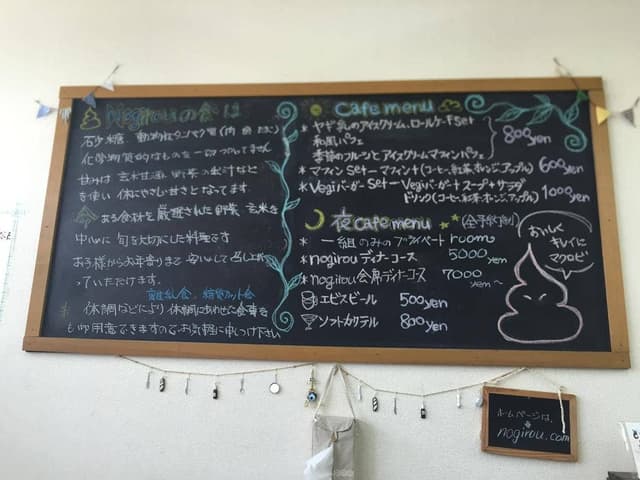 nogirouの食は
砂糖 動物性タンパク質(肉 魚 たまご)
化学物質的なものを一切つかってません
甘みは 玄米甘酒 野菜の出汁など
を使い体にやさしい甘さとなってます
ある食材を厳選された野菜 玄米を
中心に 旬を大切にした料理です
お子様からお年寄りまで 安心して召し上が
っていただけます。
離乳食、糖質カット食
体調などにより体調にあわせた食事を
も御用意できますのでお気軽に申しつけ下さい
Cafe menu
* ヤギ乳のアイスクリーム、ロールケーキset
和風パフェ
季節のフルーツとアイスクリームマフィンパフェ
800yen
* マフィンset - マフィン+(コーヒー,紅茶,オレンジ,アップル) 600yen
* Vegiバーガーset - Vegiバーガー+スープ+サラダ
ドリンク(コーヒー,紅茶,オレンジ,アップル) 1000yen
夜cafe menu (全予約制)
* 一組のみのプライベートroom
* nogirouディナーコース 5000yen
* nogirou会席ディナーコース 7000yen〜
エビスビール 500yen
ソフトカクテル 800yen
おいしく
キレイに
マクロビ
ホームページは、
nogirou.com